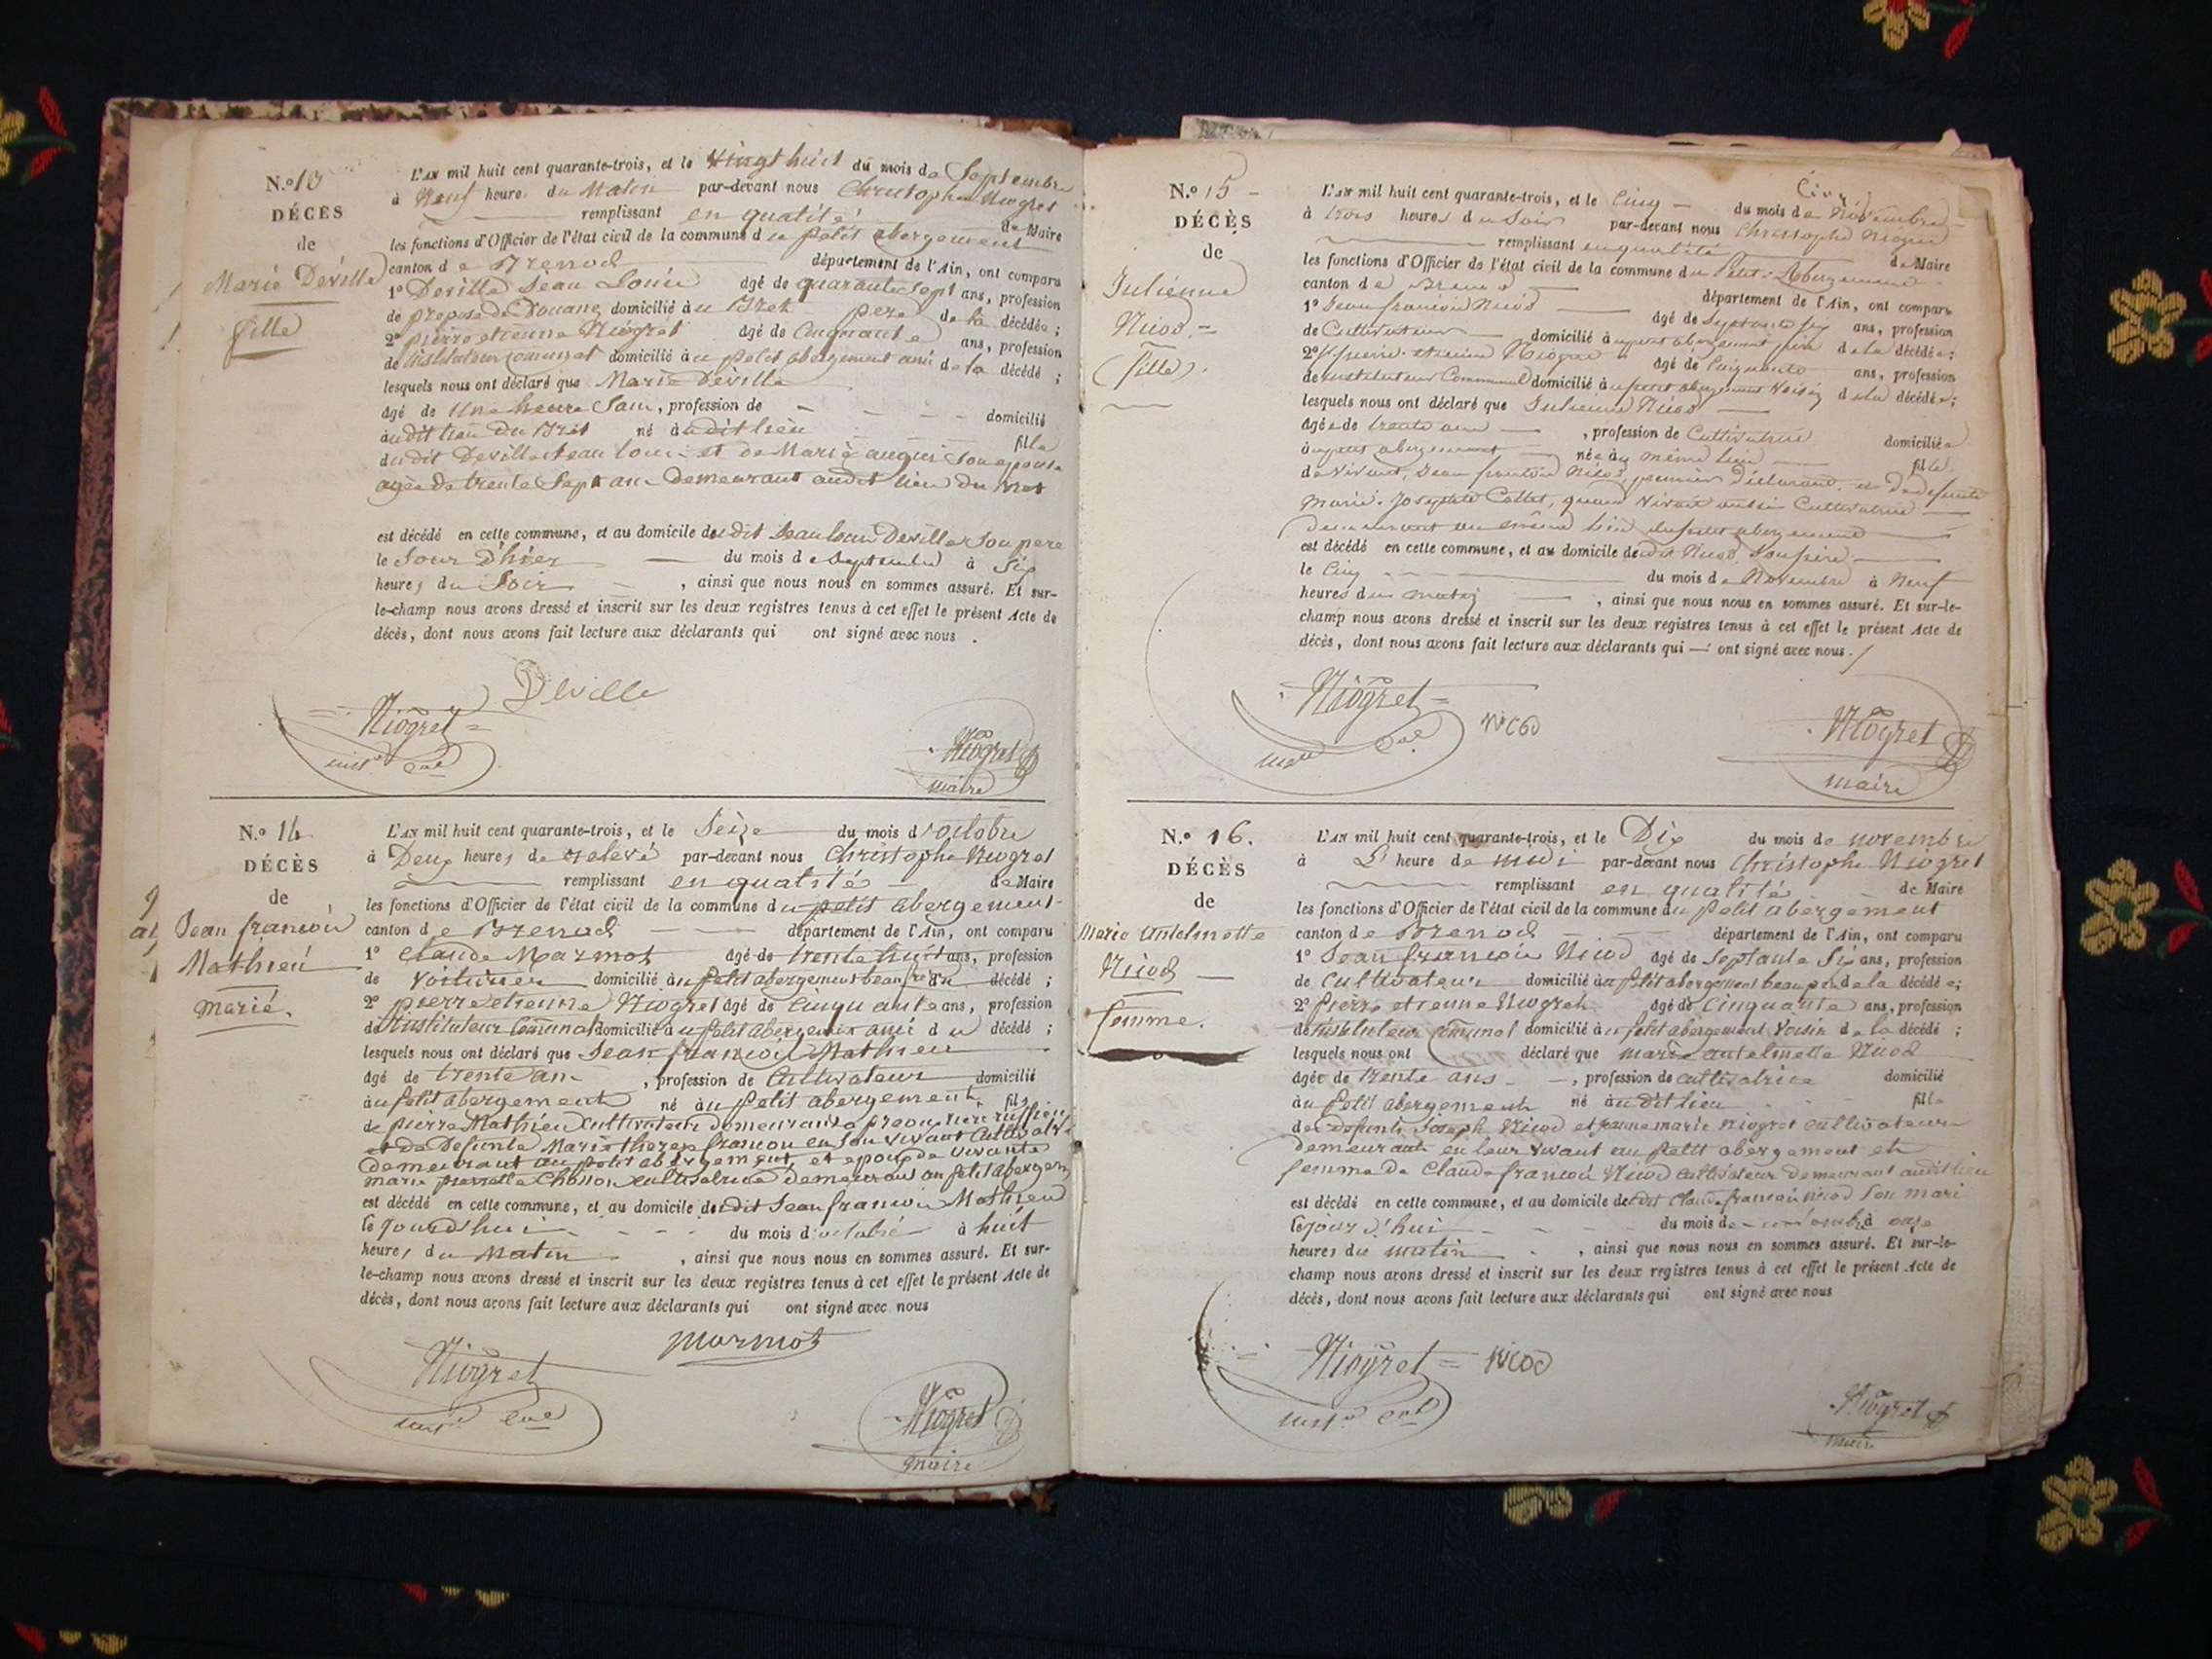 N.º 13
DÉCÈS
de
Marie Deville
fille
L'AN mil huit cent quarante-trois, et le vingt huit du mois de Septembre
à Neuf heures du Matin par-devant nous Christophe Niogret
remplissant en qualité de Maire
les fonctions d'Officier de l'état civil de la commune du petit abergement
canton de Brenod département de l'Ain, ont comparu
1º Deville Jean Louis âgé de quarante sept ans, profession
de preposé de Douane, domicilié au père de la décédée ;
2º pierre etienne Niogret âgé de Cinquante ans, profession
de instituteur Communal domicilié au petit abergement ami de la décédé ;
lesquels nous ont déclaré que Marie Deville
âgé de Une heure, profession de domicilié
audit lieu du né audit lieu fille
dudit Deville Jean louis et de Marie son epouse
agée de trente Sept ans demeurant audit lieu du
est décédé en cette commune, et au domicile dudit Jean louis Deville Son pere
le Jour d'hier du mois de Septembre à Six
heures du Soir , ainsi que nous nous en sommes assuré. Et sur-
le-champ nous avons dressé et inscrit sur les deux registres tenus à cet effet le présent Acte de
décès, dont nous avons fait lecture aux déclarants qui ont signé avec nous .
Deville
Niogret
Niogret
maire
N.º 14
DÉCÈS
de
Jean francois
Mathieu
marié.
L'AN mil huit cent quarante-trois, et le Seize du mois d'octobre
à Deux heures de relevé par-devant nous Christophe Niogret
remplissant en qualité de Maire
les fonctions d'Officier de l'état civil de la commune du petit abergement
canton de Brenod département de l'Ain, ont comparu
1º Claude Marmot âgé de trente huit ans, profession
de Voiturier domicilié au petit abergement beau frè du décédé ;
2º pierre etienne Niogret âgé de Cinquante ans, profession
de instituteur Communal domicilié au petit abergement ami du décédé ;
lesquels nous ont déclaré que Jean francois Mathieu
âgé de trente ans , profession de Cultivateur domicilié
au petit abergement né au petit abergement fils
de pierre Mathieu Cultivateur demeurant a
et de Defunte Marie therese francon en son vivant Cultivatrice
demeurant au petit abergement, et epoux de vivante
marie pierrette Chosson cultivatrice demeurant au petit abergem
est décédé en cette commune, et au domicile dudit Jean francois Mathieu
le jourd'hui du mois d'octobre à huit
heures du Matin , ainsi que nous nous en sommes assuré. Et sur-
le-champ nous avons dressé et inscrit sur les deux registres tenus à cet effet le présent Acte de
décès, dont nous avons fait lecture aux déclarants qui ont signé avec nous
marmot
Niogret
Niogret
maire
N.º 15
DÉCÈS
de
Julienne
Nicod
(fille).
L'AN mil huit cent quarante-trois, et le Cinq du mois de Novembre
à trois heures du Soir par-devant nous Christophe Niogret
remplissant en qualité de Maire
les fonctions d'Officier de l'état civil de la commune du Petit-Abergement
canton de Brenod département de l'Ain, ont comparu
1º Jean francois Nicod âgé de Septante Six ans, profession
de Cultivateur domicilié au petit abergement père de la décédée ;
2º pierre etienne Niogret âgé de Cinquante ans, profession
de instituteur Communal domicilié au petit abergement Voisin de la décédée ;
lesquels nous ont déclaré que Julienne Nicod
âgée de trente ans , profession de Cultivatrice domiciliée
au petit abergement née au même lieu fille
de Vivant, Jean francois Nicod, premier déclarant, et de defunte
Marie-Josephte Collet, quand Vivait aussi Cultivatrice
demeurant au même lieu du petit abergement
est décédé en cette commune, et au domicile dudit Nicod, Son père
le Cinq du mois de Novembre à Neuf
heures du matin , ainsi que nous nous en sommes assuré. Et sur-le-
champ nous avons dressé et inscrit sur les deux registres tenus à cet effet le présent Acte de
décès, dont nous avons fait lecture aux déclarants qui ont signé avec nous.
Niogret
Nicod
Niogret
maire
N.º 16.
DÉCÈS
de
Marie antelmette
Nicod
femme.
L'AN mil huit cent quarante-trois, et le Dix du mois de novembre
à L' heure de midi par-devant nous Christophe Niogret
remplissant en qualité de Maire
les fonctions d'Officier de l'état civil de la commune du petit abergement
canton de Brenod département de l'Ain, ont comparu
1º Jean francois Nicod âgé de Septante Six ans, profession
de Cultivateur domicilié au petit abergement beau père de la décédée ;
2º Pierre etienne Niogret âgé de Cinquante ans, profession
de instituteur communal domicilié au petit abergement voisin de la décédé ;
lesquels nous ont déclaré que marie antelmette Nicod
âgée de trente ans , profession de cultivatrice domicilié
au petit abergement né audit lieu fille
de defunts Joseph Nicod et jeanne marie niogret cultivateurs
demeurants en leur vivant au petit abergement et
femme de Claude francois Nicod cultivateur demeurant audit lieu
est décédé en cette commune, et au domicile dudit Claude francois nicod Son mari
le jour d'hui du mois de novembre à onze
heures du matin , ainsi que nous nous en sommes assuré. Et sur-le-
champ nous avons dressé et inscrit sur les deux registres tenus à cet effet le présent Acte de
décès, dont nous avons fait lecture aux déclarants qui ont signé avec nous
Niogret
Nicod
Niogret
maire